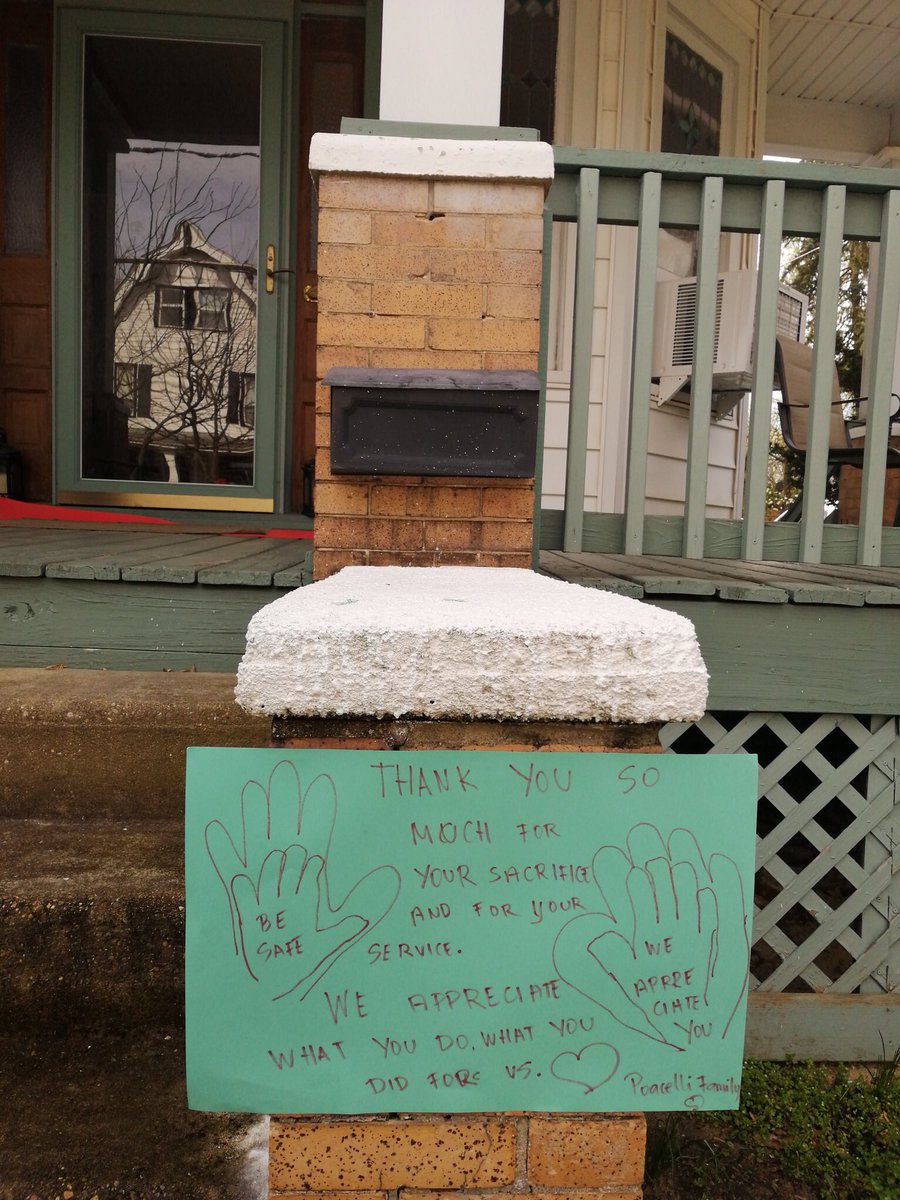 THANK YOU SO
MUCH FOR
YOUR SACRIFICE
AND FOR YOUR
SERVICE.
WE APPRECIATE
WHAT YOU DO, WHAT YOU
DID FOR US.
BE
SAFE
WE
APPRE
CIATE
YOU
Porcelli Family